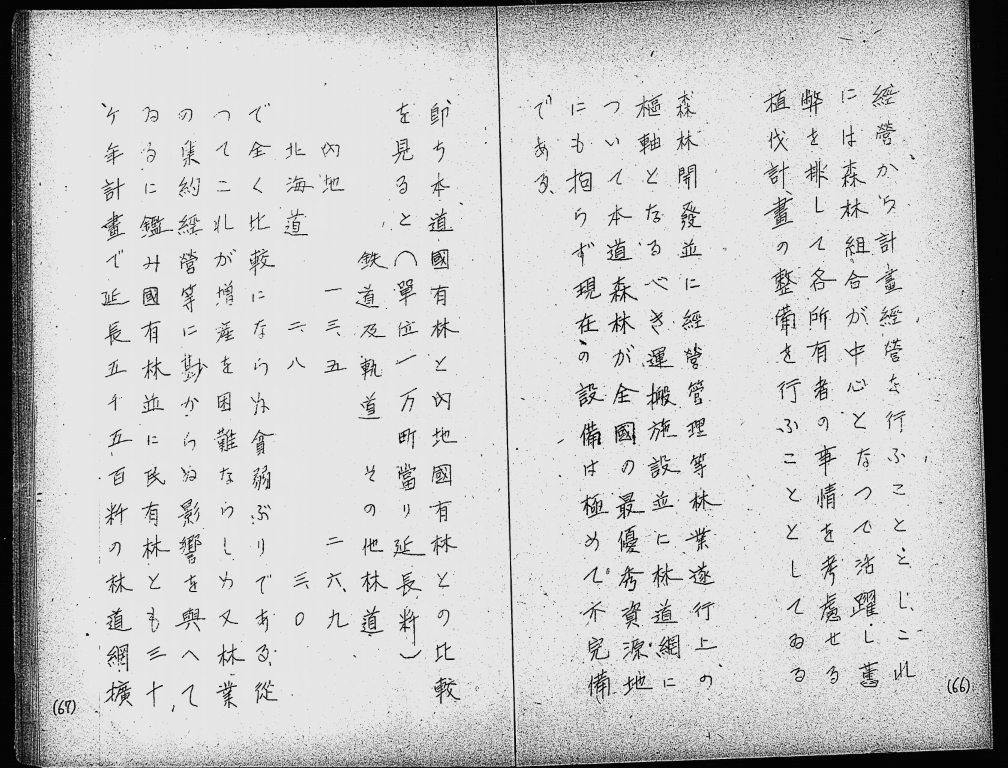 經營から計畫經營を行ふことゝし、これ
には森林組合が中心となつて活躍し舊
弊を排して各所有者の事情を考慮せる
植伐計畫の整備を行ふこととしてゐる
森林開發並に經營管理等林業遂行上の
樞軸となるべき運搬施設並に林道網に
ついて本道森林が全國の最優秀資源地
にも拘らず現在の設備は極めて不完備
である、
(66)
卽ち本道國有林と內地國有林との比較
を見ると(單位一万町當り延長粁)
鉄道及軌道 その他林道
內地 一三、五 二六、九
北海道 二、八 三、〇
で全く比較にならぬ貧弱ぶりである、從
つてこれが增産を困難ならしめ又林業
の集約經營等に尠からぬ影響を與へて
ゐるに鑑み國有林並に民有林とも三十
ケ年計畫で延長五千五百粁の林道網擴
(67)